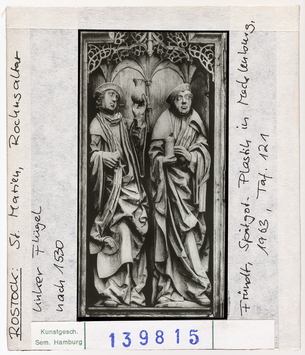 ROSTOCK: St. Marien, Rochusaltar
linker Flügel
nach 1530
Fründt, Spätgot. Plastik in Mecklenburg,
1963, Taf. 121
Kunstgesch.
Sem. Hamburg
139815